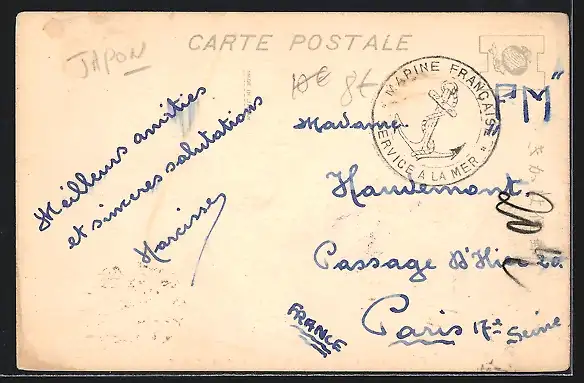 JAPON
CARTE POSTALE
10€ 8€
MARINE FRANÇAISE
SERVICE A LA MER
"FM"
Meilleurs amitiés
et sinceres salutations
Narcisse
Madame
Haudemont
Passage D'
Paris 17e Seine
FRANCE